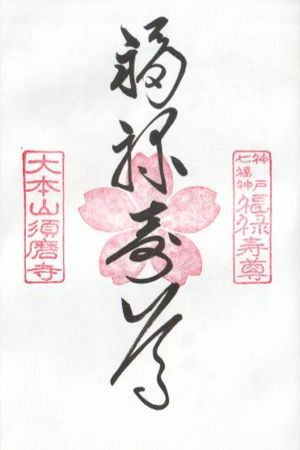 神戸
七福神
福禄寿尊
福禄寿尊
大本山須磨寺